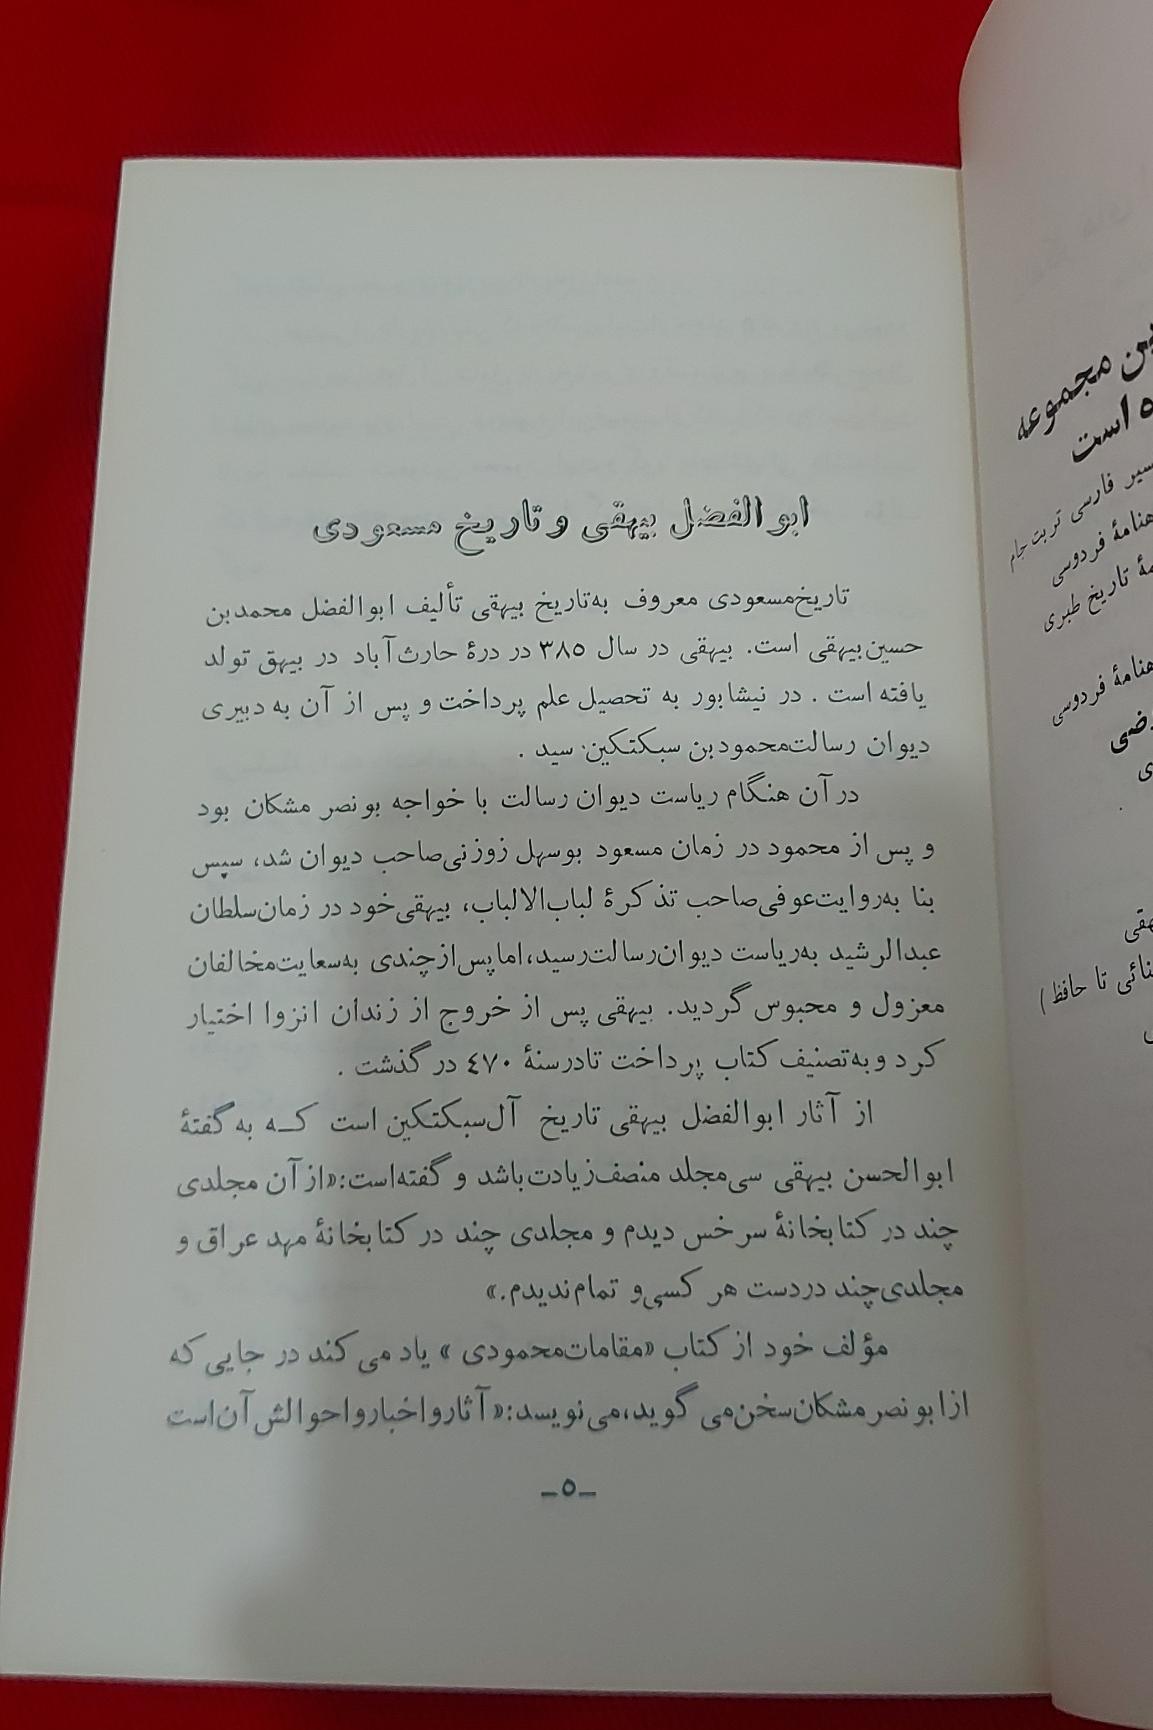 ابوالفضل بیهقی و تاریخ مسعودی
تاریخ‌مسعودی معروف به‌تاریخ بیهقی تألیف ابوالفضل محمدبن
حسین‌بیهقی است. بیهقی در سال ۳۸۵ در درهٔ حارث‌آباد در بیهق تولد
یافته است . در نیشابور به تحصیل علم پرداخت و پس از آن به دبیری
دیوان رسالت‌محمودبن سبکتکین سید .
در آن هنگام ریاست دیوان رسالت با خواجه بونصر مشکان بود
و پس از محمود در زمان مسعود بوسهل زوزنی‌صاحب دیوان شد، سپس
بنا به‌روایت‌عوفی‌صاحب تذکرهٔ لباب‌الالباب، بیهقی‌خود در زمان‌سلطان
عبدالرشید به‌ریاست دیوان‌رسالت‌رسید،اماپس‌ازچندی به‌سعایت‌مخالفان
معزول و محبوس گردید. بیهقی پس از خروج از زندان انزوا اختیار
کرد وبه‌تصنیف کتاب پرداخت تادرسنهٔ ٤٧٠ درگذشت .
از آثار ابوالفضل بیهقی تاریخ آل‌سبکتکین است کـه به گفتهٔ
ابوالحسن بیهقی سی‌مجلد منصف‌زیادت‌باشد و گفته‌است:«ازآن مجلدی
چند در کتابخانهٔ سرخس دیدم و مجلدی چند در کتابخانهٔ مهد عراق و
مجلدی‌چند دردست هر کسی‌و تمام‌ندیدم.»
مؤلف خود از کتاب «مقامات‌محمودی » یاد می کند در جایی که
ازابونصرمشکان‌سخن‌می گوید،می‌نویسد:«آثارواخبارواحوالش‌آن‌است
ـ۵ـ
مجموعه
است
فارسی تربت‌جام
فردوسی
تاریخ طبری
فردوسی
تا حافظ)